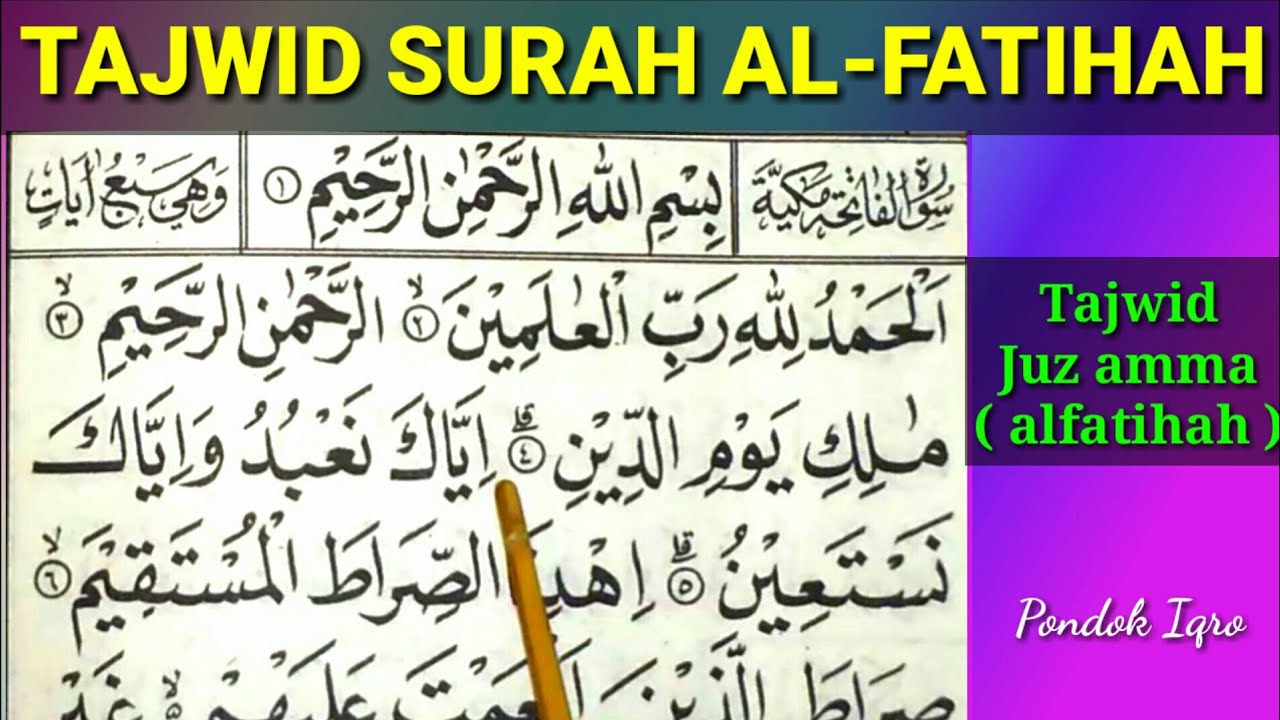 TAJWID SURAH AL-FATIHAH
سُوْرَةُ الْفَاتِحَةِ مَكِّيَّةٌ
بِسْمِ اللهِ الرَّحْمٰنِ الرَّحِيْمِ ١
وَهِيَ سَبْعُ اٰيَاتٍ
اَلْحَمْدُ لِلّٰهِ رَبِّ الْعٰلَمِيْنَۙ ٢ الرَّحْمٰنِ الرَّحِيْمِۙ ٣
مٰلِكِ يَوْمِ الدِّيْنِۗ ٤ اِيَّاكَ نَعْبُدُ وَاِيَّاكَ
نَسْتَعِيْنُۗ ٥ اِهْدِ الصِّرَاطَ الْمُسْتَقِيْمَۙ ٦
صِرَاطَ الَّذِيْنَ اَنْعَمْتَ عَلَيْهِمْ ۙ غَيْرِ
Tajwid
Juz amma
( alfatihah )
Pondok Iqro